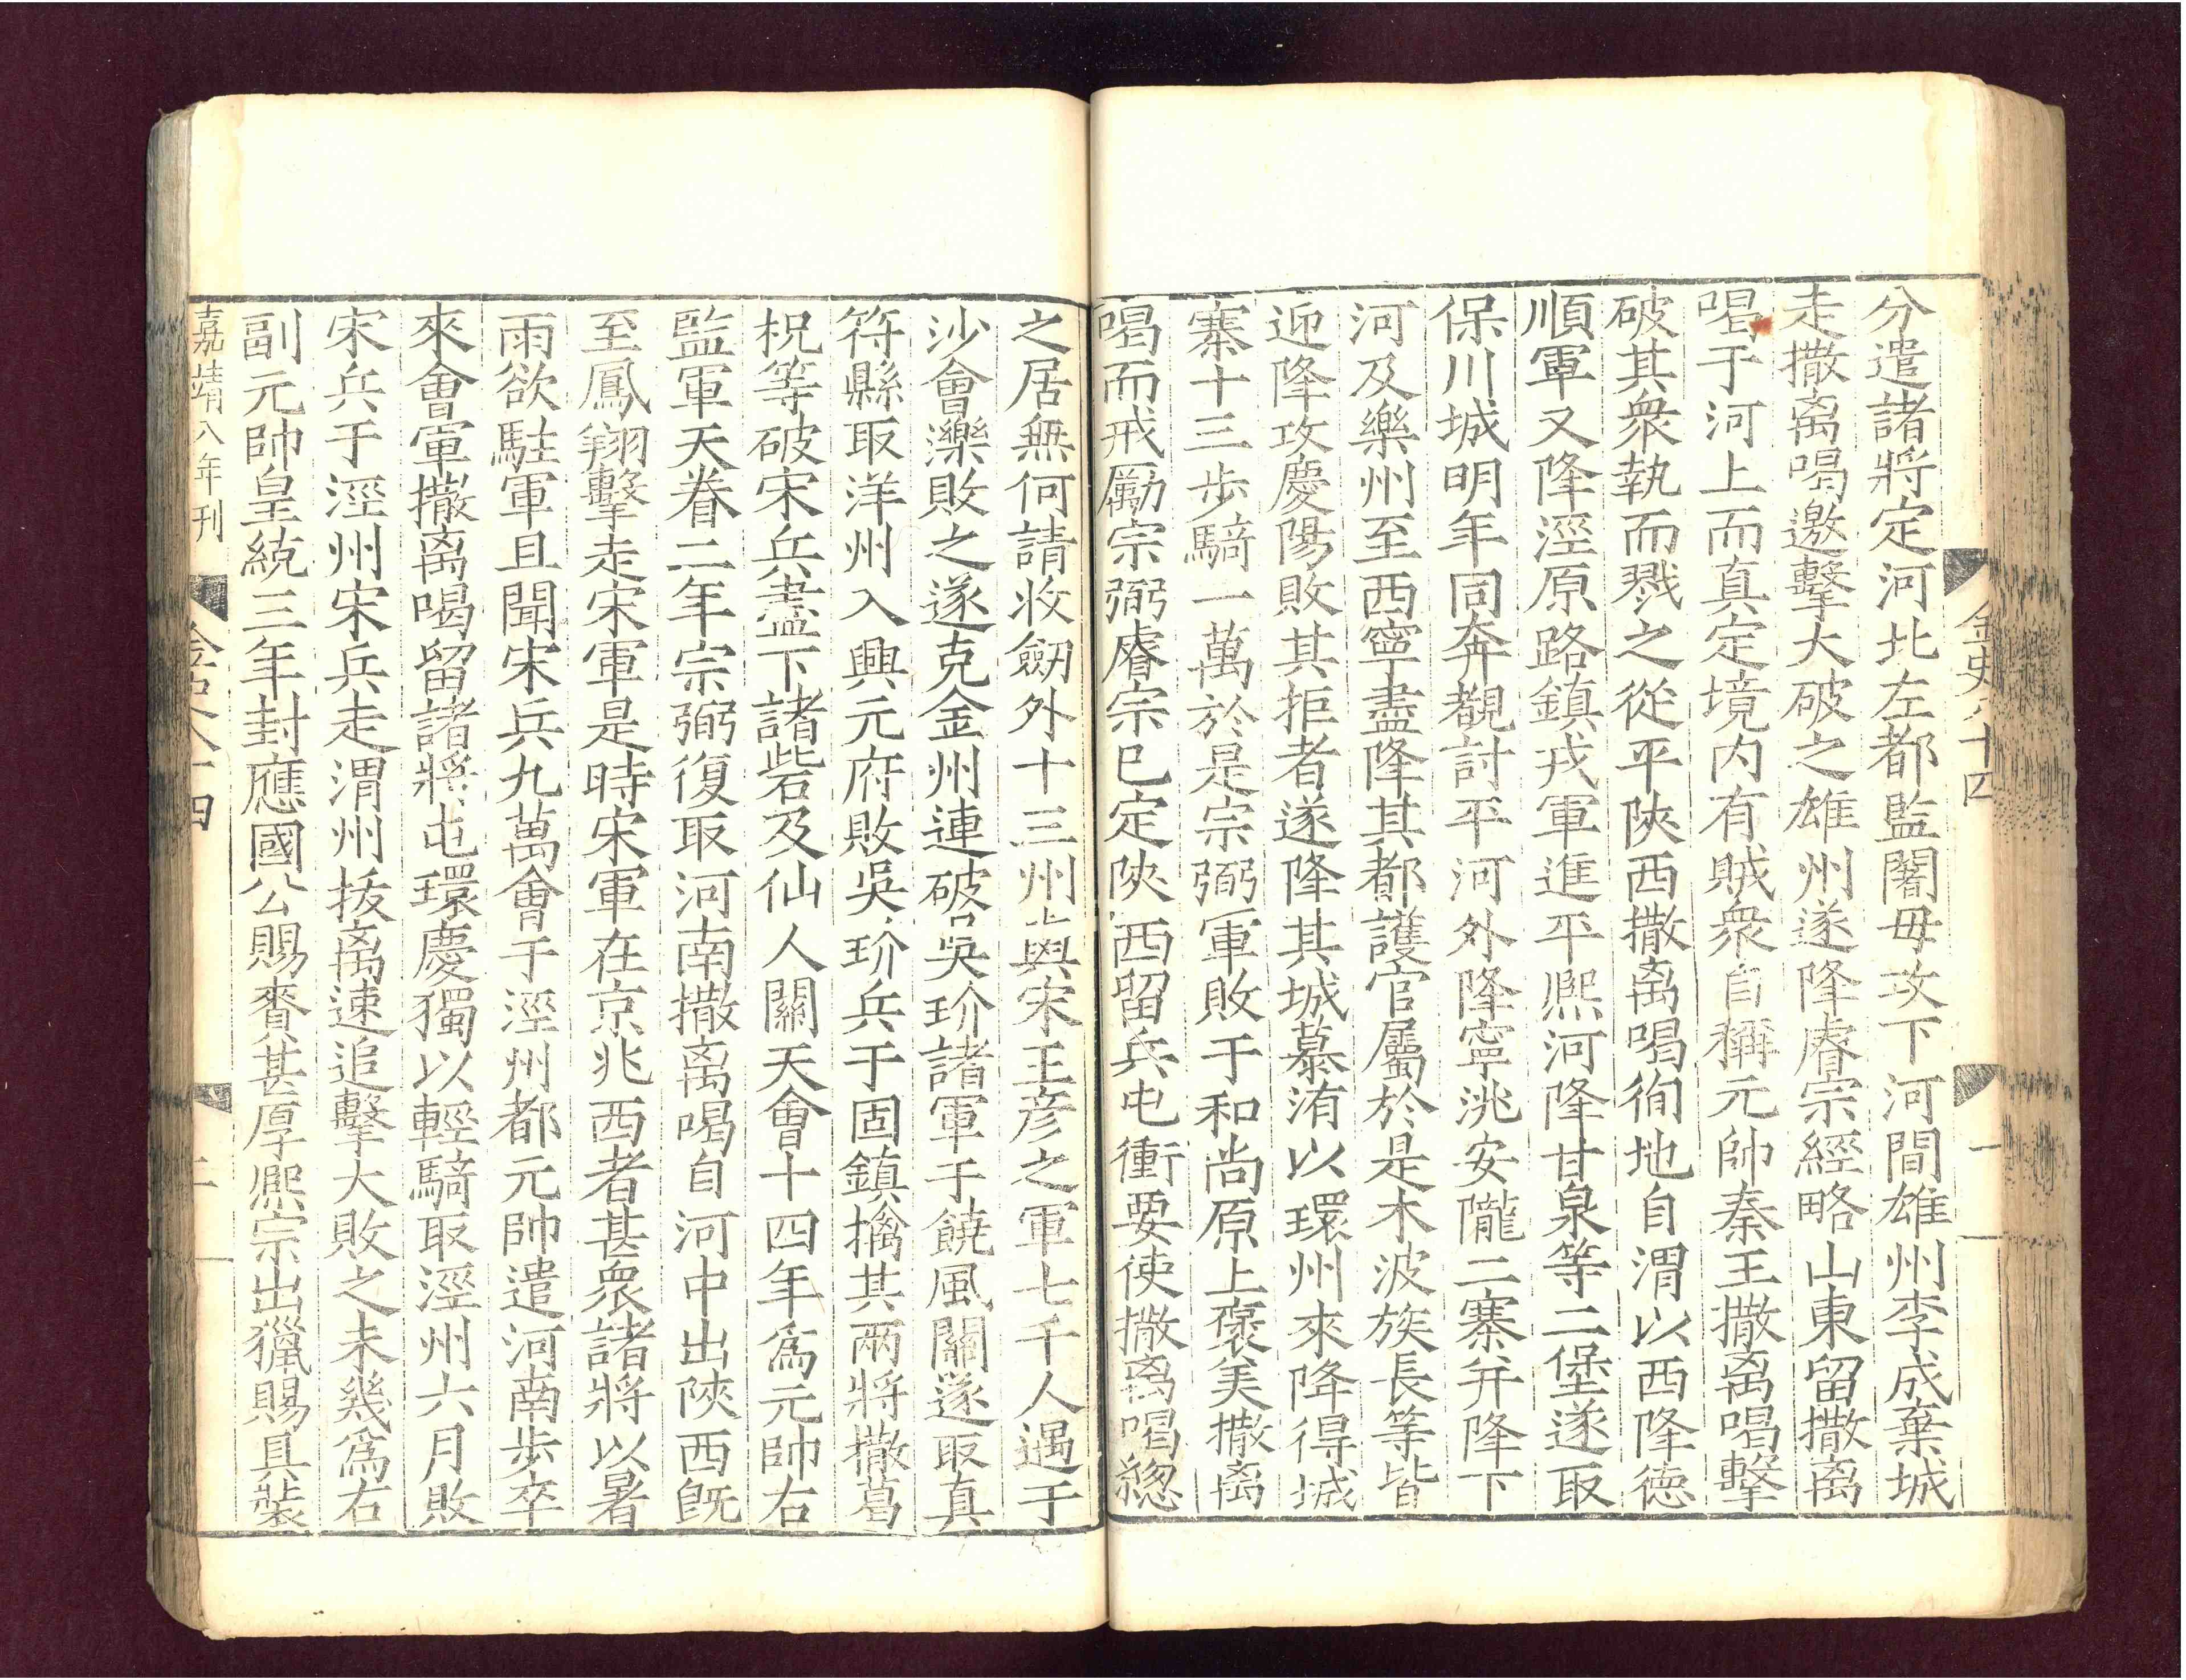 分遣諸將定河北左都監闍毋攻下河間雄州李成棄城
走撒离喝邀擊大破之雄州遂降睿宗經略山東留撒离
喝于河上而真定境内有賊衆自稱元帥秦王撒离喝擊
破其衆執而戮之從平陝西撒离喝徇地自渭以西降德
順軍又降涇原路鎮戎軍進平熙河降甘泉等二堡遂取
保川城明年同奔覩討平河外降寧洮安隴二寨并降下
河及樂州至西寧盡降其都護官屬於是木波族長等皆
迎降攻慶陽敗其拒者遂降其城慕洧以環州來降得城
寨十三步騎一萬於是宗弼軍敗于和尚原上褒美撒离
喝而戒勵宗弼睿宗已定陝西留兵屯衝要使撒离喝緫
之居無何請收劒外十三州與宋王彦之軍七千人遇于
沙會濼敗之遂克金州連破吳玠諸軍于饒風關遂取真
符縣取洋州入興元府敗吳玠兵于固鎮擒其兩將撒葛
柷等破宋兵盡下諸砦及仙人關天會十四年為元帥右
監軍天眷二年宗弼復取河南撒离喝自河中出陝西旣
至鳳翔擊走宋軍是時宋軍在京兆西者甚衆諸將以暑
雨欲駐軍且聞宋兵九萬會于涇州都元帥遣河南步卒
來會軍撒离喝留諸將屯環慶獨以輕騎取涇州六月敗
宋兵于涇州宋兵走渭州拔离速追擊大敗之未幾為右
副元帥皇統三年封應國公賜賚甚厚熙宗出獵賜具裝
嘉靖八年刊
金史八十四
二
金史八十四
一